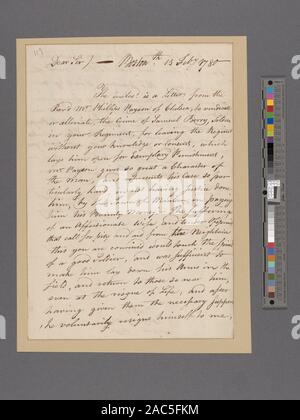 Dear Sir / — Boston 15 Feby 1780
The inclosed is a Letter from the
Revd Mr Phillips Payson of Chelsea, to vindicate
or alleviate, the Crime of Samuel Berry, Soldier
in your Regiment, for leaving the Regiment
without your knowledge or consent, which
lays him open for Exemplary Punishment,
Mr Payson gives so great a Character of
the Man, & represents his case so par
ticularly hard
him, by
him his Bounty
of an Affectionate Wife and
that call for pity and aid from his Neighbors
This you are convinced would touch the Spirit
of a good Soldier, and was sufficient to
make him lay down his Arms in the
Field, and return to those so near him,
even at the risque of Life, and after
having given them the necessary support
he voluntarily resigns himself to me,
alamy
Image ID: 2AC5FKM
www.alamy.com